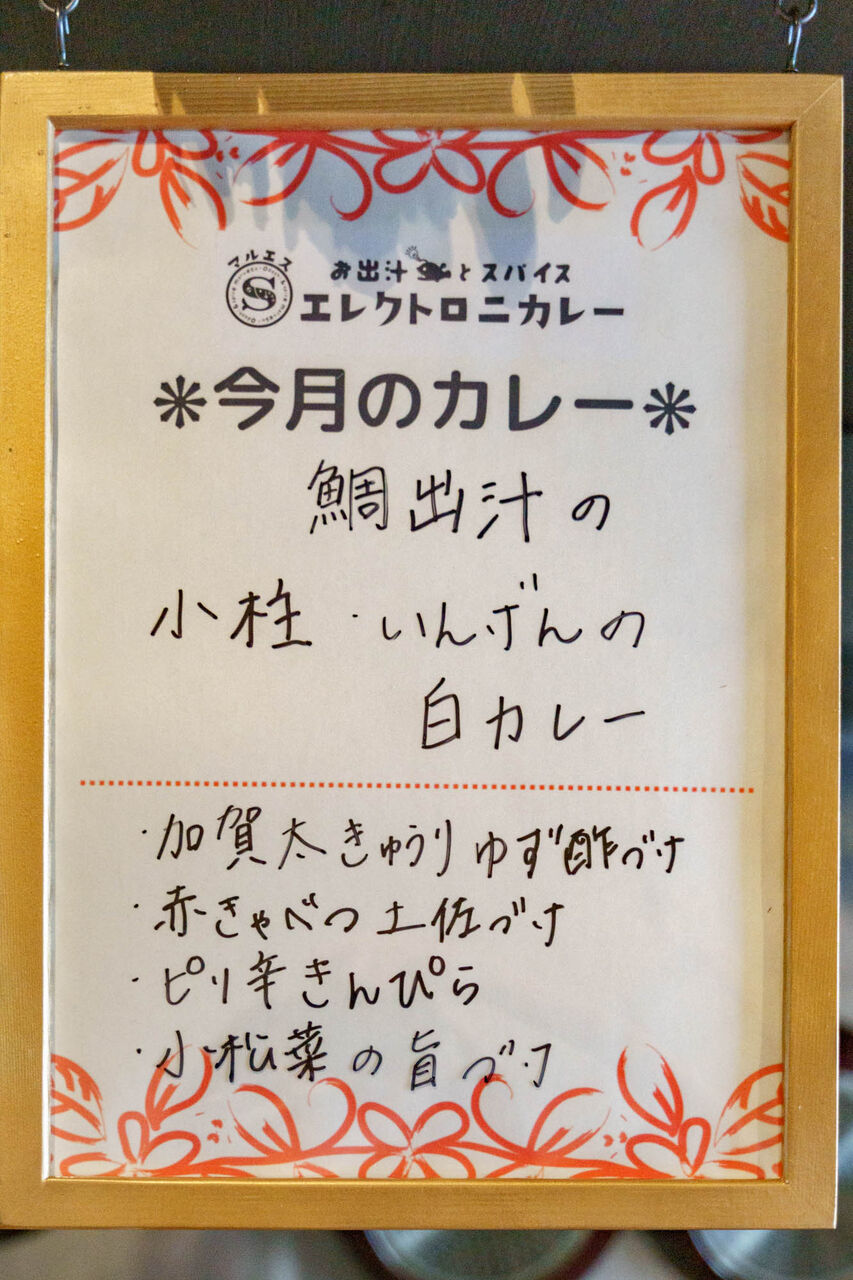 マルエス
S
お出汁とスパイス
エレクトロニカレー
＊今月のカレー＊
鯛出汁の
小柱・いんげんの
白カレー
・加賀太きゅうりゆず酢づけ
・赤きゃべつ土佐づけ
・ピリ辛きんぴら
・小松菜の旨づけ